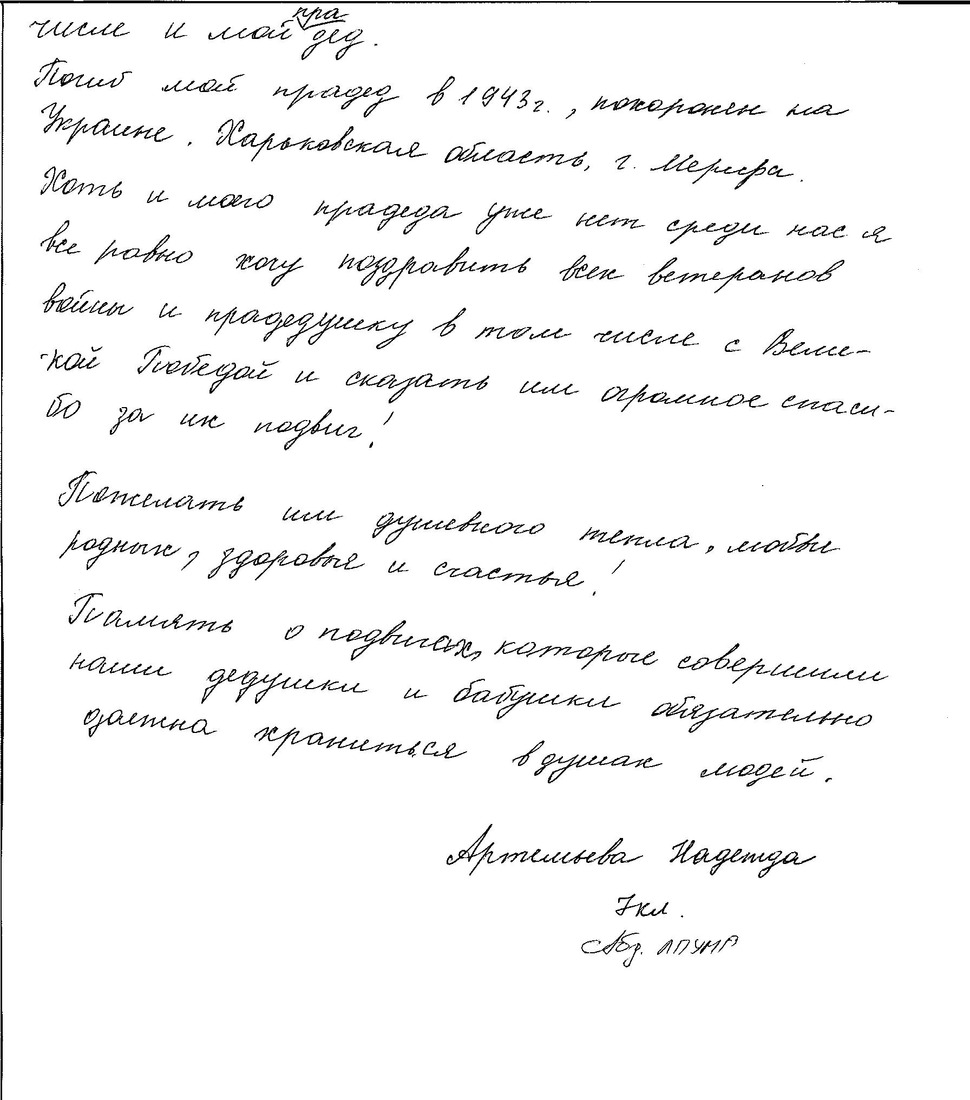 числе и мой прадед.
Погиб мой прадед в 1943г., похоронен на
Украине. Харьковская область, г. Мерефа.
Хоть и моего прадеда уже нет среди нас я
все равно хочу поздравить всех ветеранов
войны и прадедушку в том числе с Вели-
кой Победой и сказать им огромное спаси-
бо за их подвиг!
Пожелать им душевного тепла, любви
родных, здоровье и счастья!
Память о подвигах, которые совершили
наши дедушки и бабушки обязательно
должна храниться в душах людей.
Артемьева Надежда
7кл.
Абд. ЛПУМГ